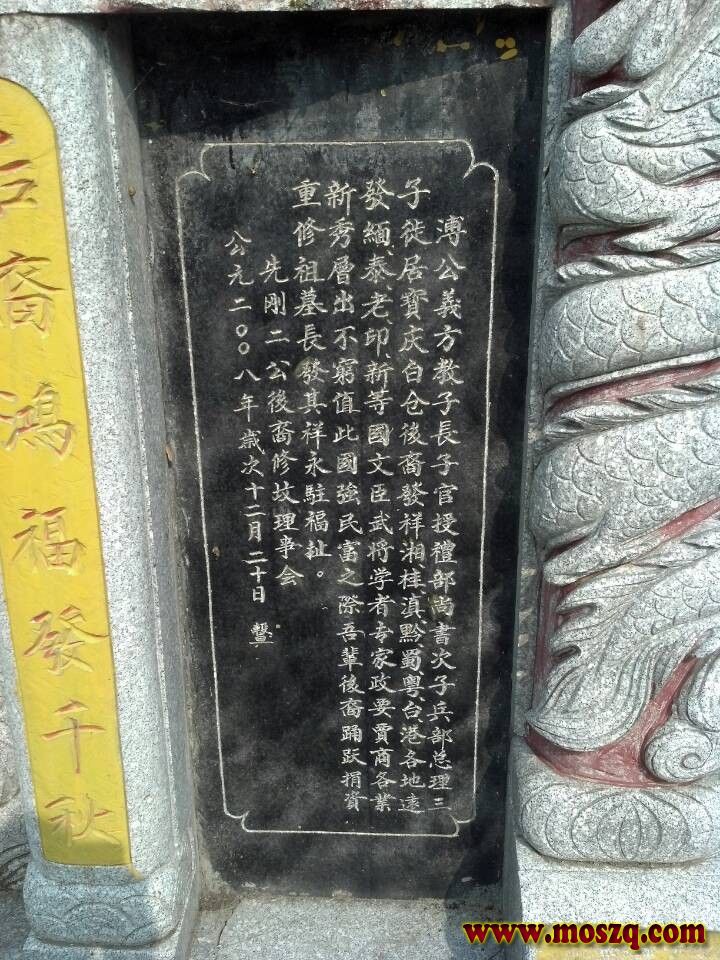 溥公義方教子長子官授禮部尚書次子兵部总理三
子徙居寶庆白仓後裔發祥湘、桂、滇、黔、蜀、粵、台港各地遠
發緬、泰、老、印、新等國文臣武将学者专家政要賈商各業
新秀層出不窮值此國強民富之際吾輩後裔踊跃捐資
重修祖墓長發其祥永駐福址。
先刚二公後裔修坟理事会
公元二〇〇八年歲次十二月二十日 豎
裔鴻福發千秋
www.moszq.com